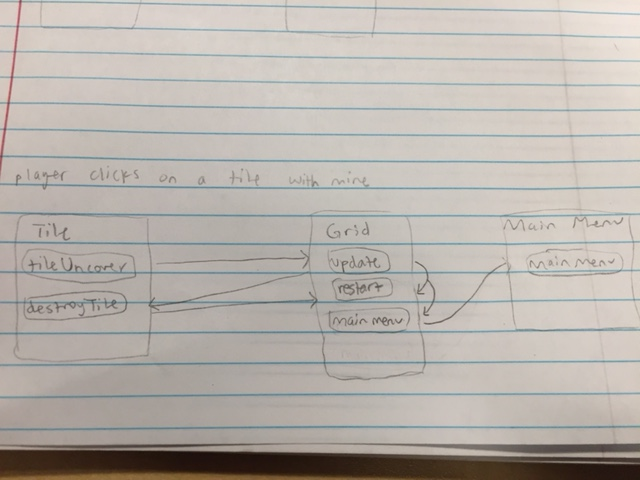 player clicks on a tile with mine
Tile
tileUncover
destroyTile
Grid
update
restart
main menu
Main Menu
Main Menu